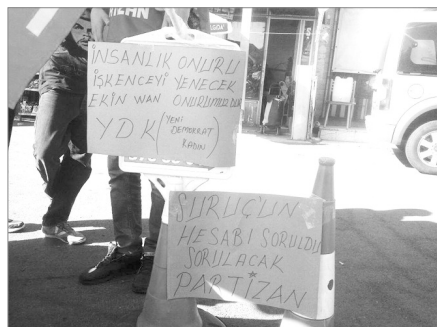 İNSANLIK ONURU
İŞKENCEYİ YENECEK
EKİN WAN ONURUMUZDUR
YDK (YENİ
DEMOKRAT
KADIN)
SURUÇUN
HESABI SORULDU
SORULACAK
PARTİZAN